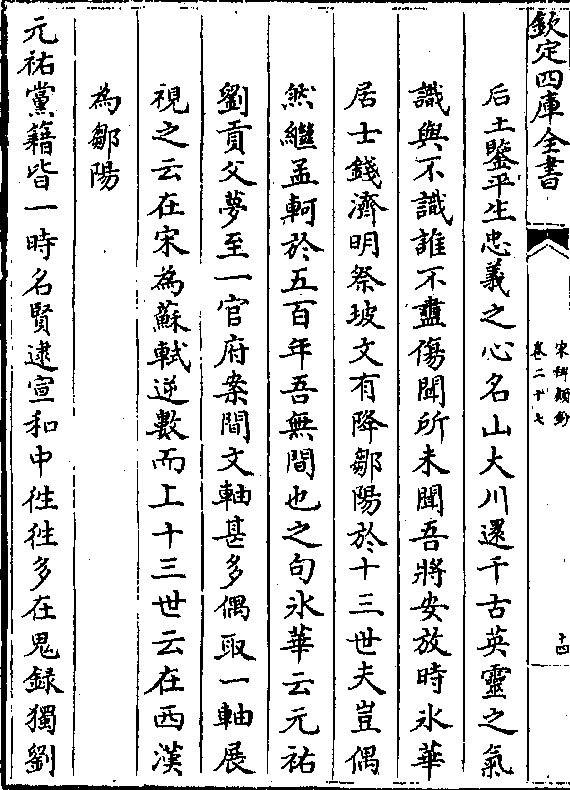 欽定四庫全書
宋稗類鈔
卷二十七
十四
后土鑒平生忠義之心名山大川還千古英靈之氣
識與不識誰不盡傷聞所未聞吾將安放時氷華
居士錢濟明祭坡文有降鄒陽於十三世夫豈偶
然繼孟軻於五百年吾無間也之句氷華云元祐
劉貢父夢至一官府案間文軸甚多偶取一軸展
視之云在宋為蘇軾逆數而上十三世云在西漢
為鄒陽
元祐黨籍皆一時名賢逮宣和中徃徃多在鬼録獨劉